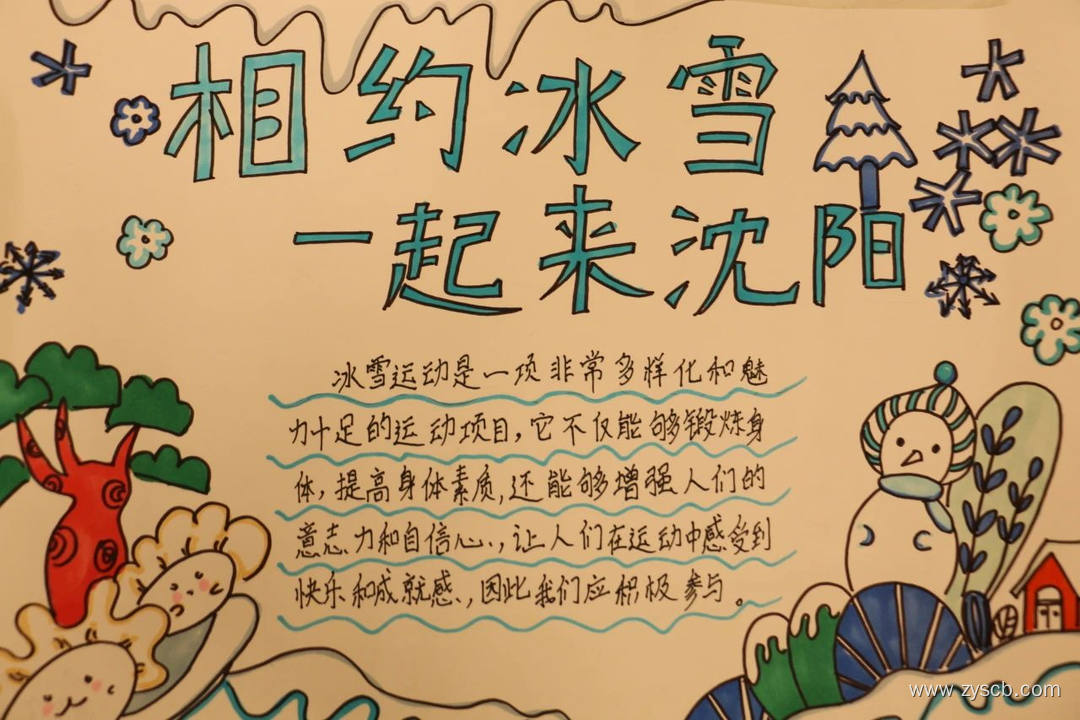 相约冰雪
一起来沈阳
冰雪运动是一项非常多样化和魅
力十足的运动项目，它不仅能够锻炼身
体，提高身体素质，还能够增强人们的
意志力和自信心，让人们在运动中感受到
快乐和成就感，因此我们应积极参与。
www.zyscb.com